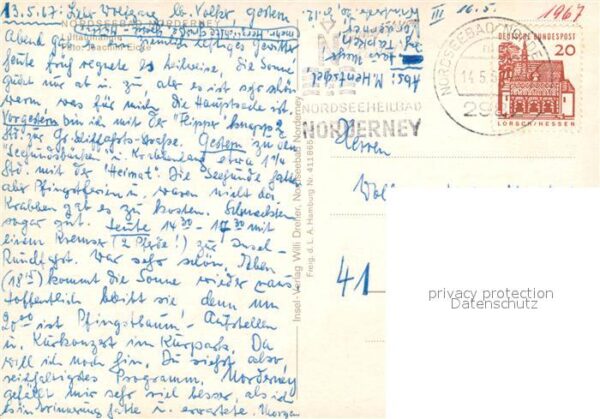 13.5.67. Lieber Wolfgang, lb. Volker, gestern
NORDSEEBAD NORDERNEY
Luftaufnahme
Foto: Joachim Eicke
Abend gab es ziemlich heftiges Gewitter
heute früh regnete es teilweise, die Sonne
guckt nur ab u. zu, aber es ist sehr schön
warm, was für mich die Hauptsache ist.
Vorgestern bin ich mit der "Flipper" knapp 2
Std. zur Gr. Schiffahrts-Straße. Gestern zu den
"Seehundsbänken" u. Krabbenfang etwa 1 3/4
Std. mit der "Heimat". Die Seehunde hatten
aber Pfingstferien u. waren nicht da.
Krabben gab es zu kosten. Schmeckten
sogar gut. Heute 14 30 - 17 30 mit
einem Kremser (2 Pferde!) zur Insel-
Rundfahrt. War sehr schön. Eben
kommt die Sonne wieder raus
hoffentlich bleibt sie denn um
20 00 ist Pfingstbaum-Aufstellen
u. Kurkonzert im Kurpark. Da
will ich noch hin. Du siehst also,
reichhaltiges Programm. Norderney
gefällt mir sehr viel besser, als ich
es in Erinnerung hatte u. erwartete. Morgen
Insel-Verlag Willi Dreher, Nordseebad Norderney
Freig. d. L. A. Hamburg Nr. 411865
Abs: M. Hentschel
NORDSEEHEILBAD
NORDERNEY
III 16.5. 1967
NORDSEEBAD NORDERNEY
14.5.6
DEUTSCHE BUNDESPOST
20
LORSCH/HESSEN
Herrn
41
privacy protection
Datenschutz